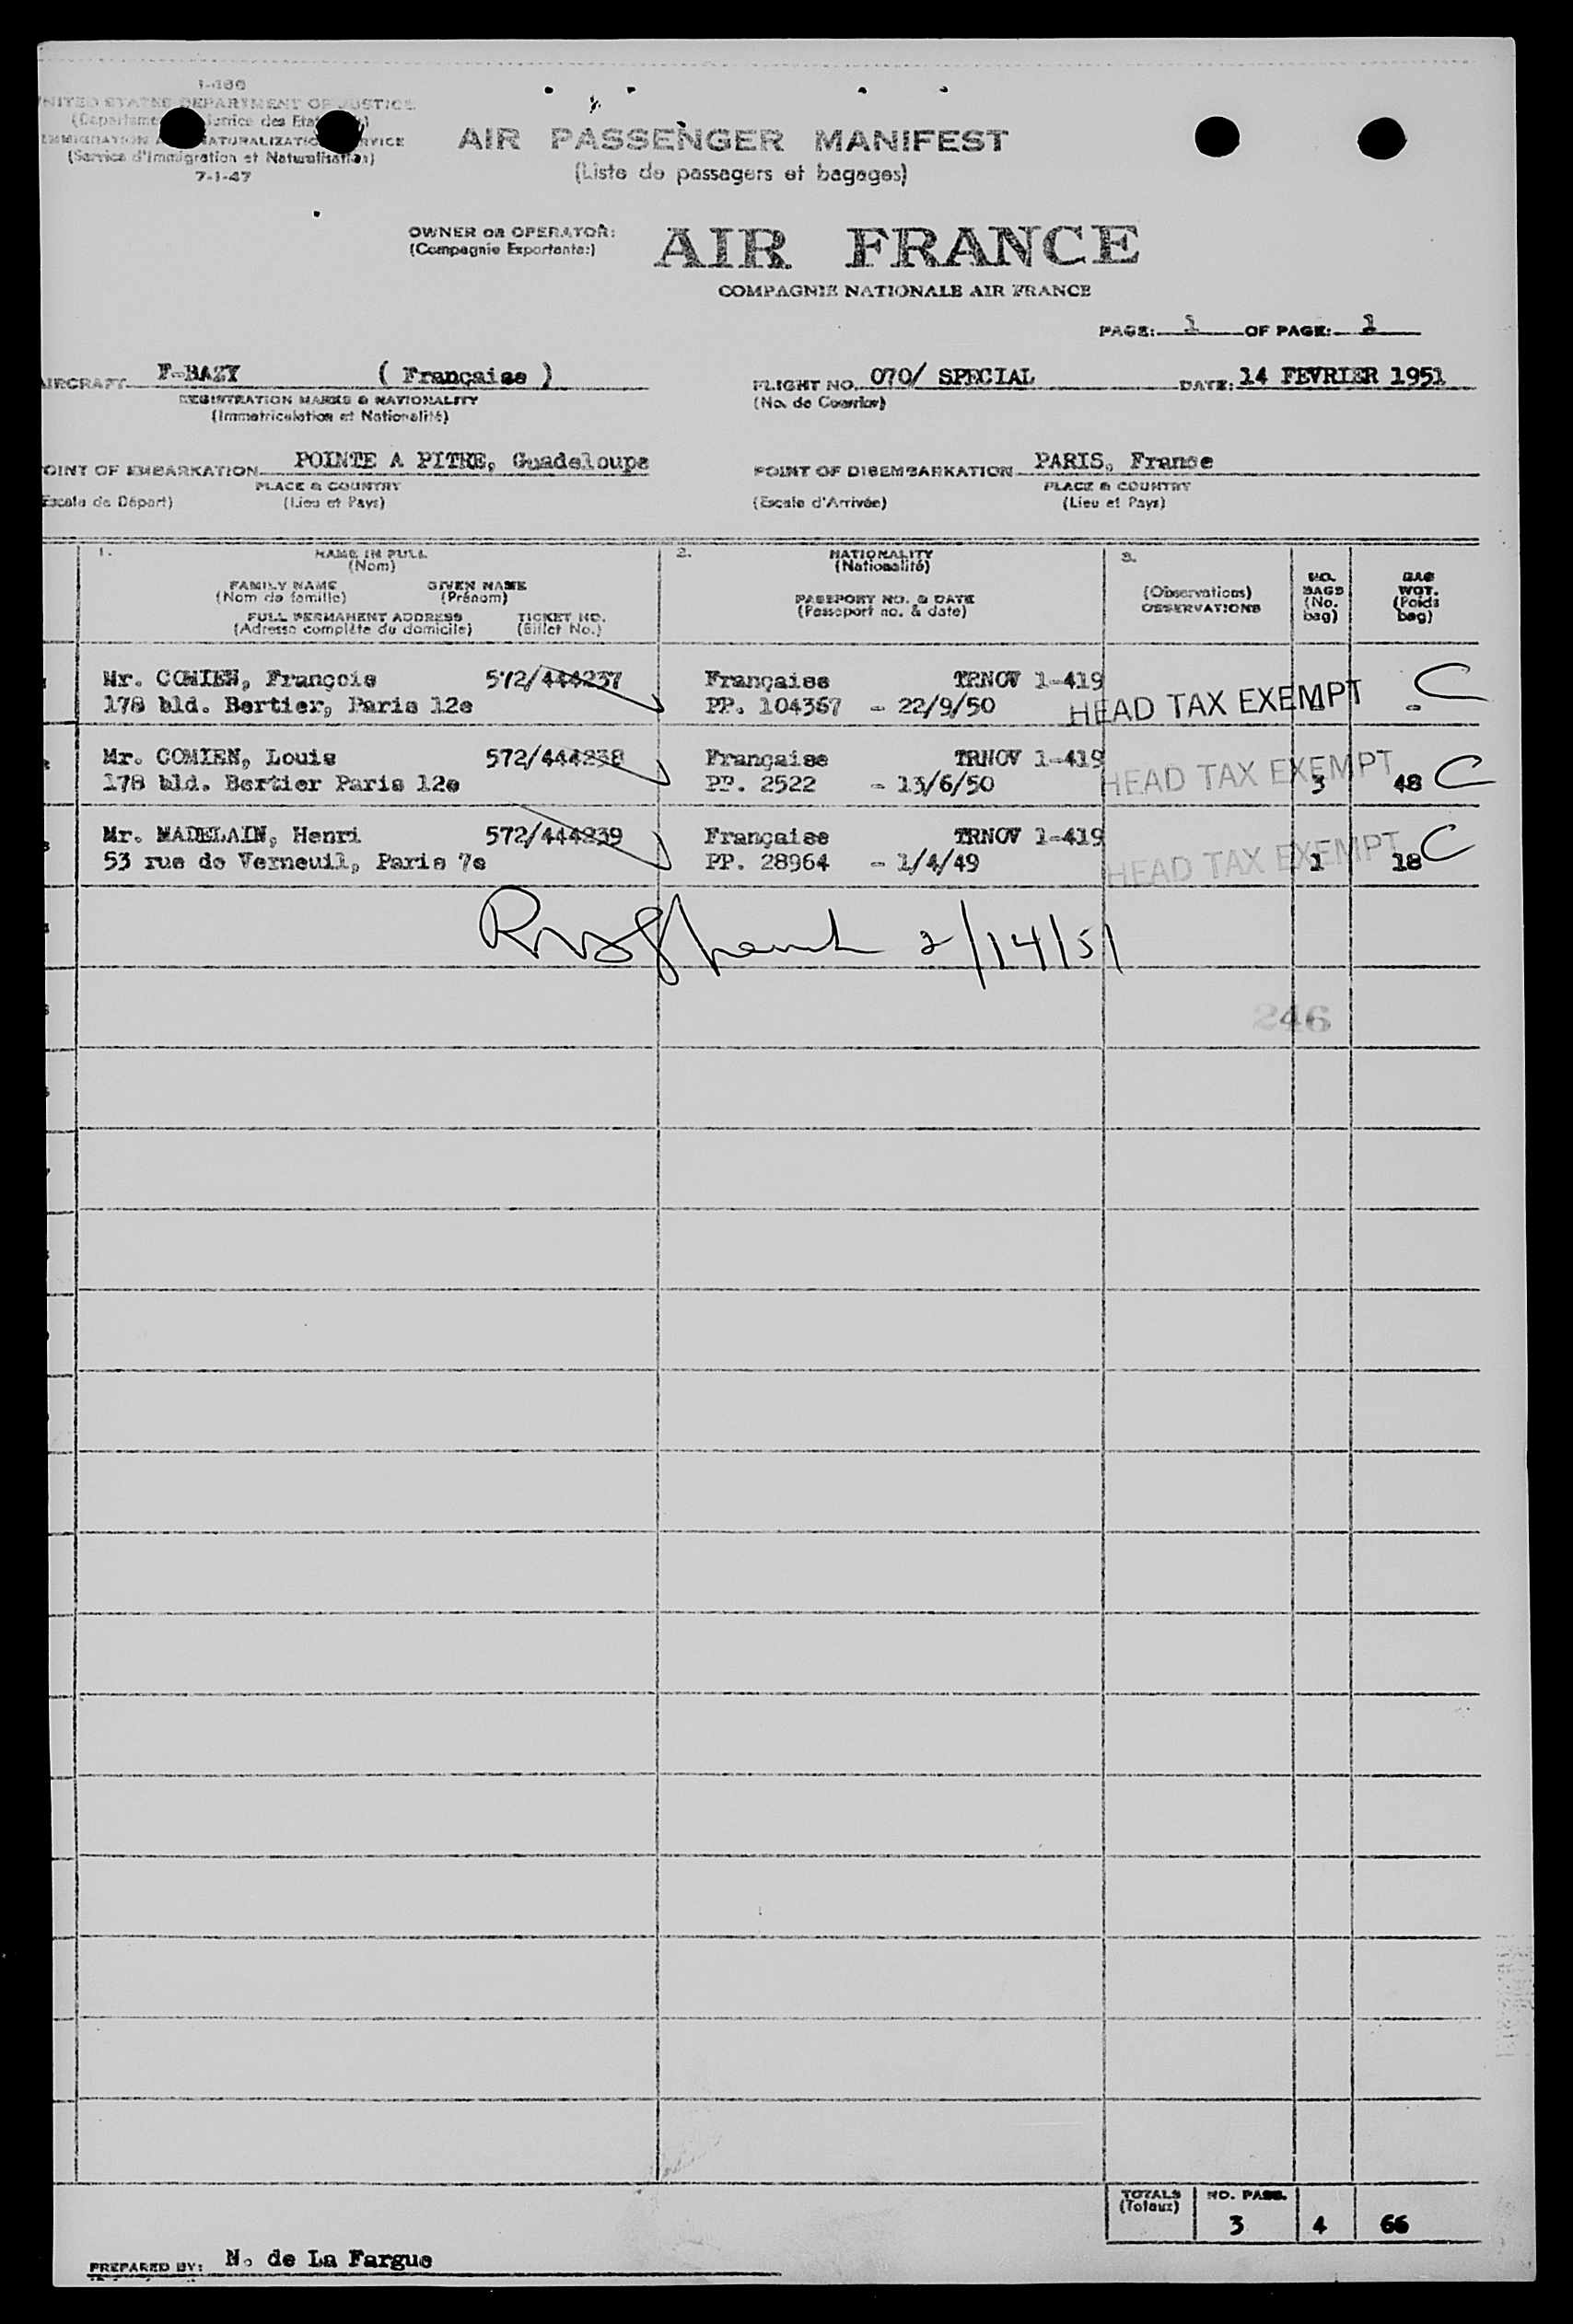 I-466
UNITED STATES DEPARTMENT OF JUSTICE
(Departeme Justice des Etat )
IMMIGRATION A NATURALIZATIO RVICE
(Service d'Immigration et Naturalisation)
7-1-47
AIR PASSENGER MANIFEST
(Liste de passagers et bagages)
OWNER OR OPERATOR:
(Compagnie Exportante:)
AIR FRANCE
COMPAGNIE NATIONALE AIR FRANCE
PAGE: 1 OF PAGE: 1
AIRCRAFT F-BAZY ( Française )
REGISTRATION MARKS & NATIONALITY
(Immatriculation et Nationalité)
FLIGHT NO. 070/ SPECIAL
(No. de Courrier)
DATE: 14 FEVRIER 1951
OINT OF EMBARKATION POINTE A PITRE, Guadeloupe
PLACE & COUNTRY
Escale de Départ) (Lieu et Pays)
POINT OF DISEMBARKATION PARIS, France
PLACE & COUNTRY
(Escale d'Arrivée) (Lieu et Pays)
1. NAME IN FULL
(Nom)
FAMILY NAME GIVEN NAME
(Nom de famille) (Prénom)
FULL PERMANENT ADDRESS TICKET NO.
(Adresse complète du domicile) (Billet No.)
2. NATIONALITY
(Nationalité)
PASSPORT NO. & DATE
(Passeport no. & date)
3.
(Observations)
OBSERVATIONS
NO.
BAGS
(No.
bag)
BAG
WGT.
(Poids
bag)
Mr. COMIEN, François 572/444237 Française TRNOV 1-419
178 bld. Bertier, Paris 12e PP. 104367 - 22/9/50 HEAD TAX EXEMPT - - C
Mr. COMIEN, Louis 572/444238 Française TRNOV 1-419
178 bld. Bertier Paris 12e PP. 2522 - 13/6/50 HEAD TAX EXEMPT 3 48 C
Mr. MADELAIN, Henri 572/444239 Française TRNOV 1-419
53 rue de Verneuil, Paris 7e PP. 28964 - 1/4/49 HEAD TAX EXEMPT 1 18 C
2/14/51
246
TOTALS NO. PASS.
(Totaux) 3 4 66
PREPARED BY: N. de La Fargue